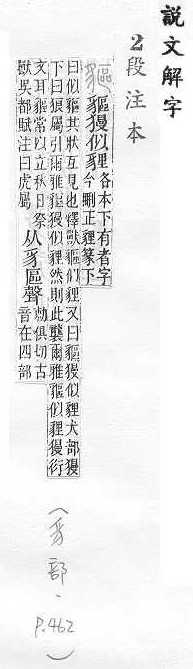 説文解字
2段注本
貙 貙獌似貍各本下有者字
今刪正貍篆下
曰似貙其狀互見也釋獸貙似貍又曰貙獌似貍犬部獌
下曰狼屬引爾雅貙獌似貍然則此襲爾雅貙似貍獌衍
文耳貙常以立秋日祭
獸吳都賦注曰虎屬
从豸區聲
敕俱切古
音在四部
(豸部、P.462)